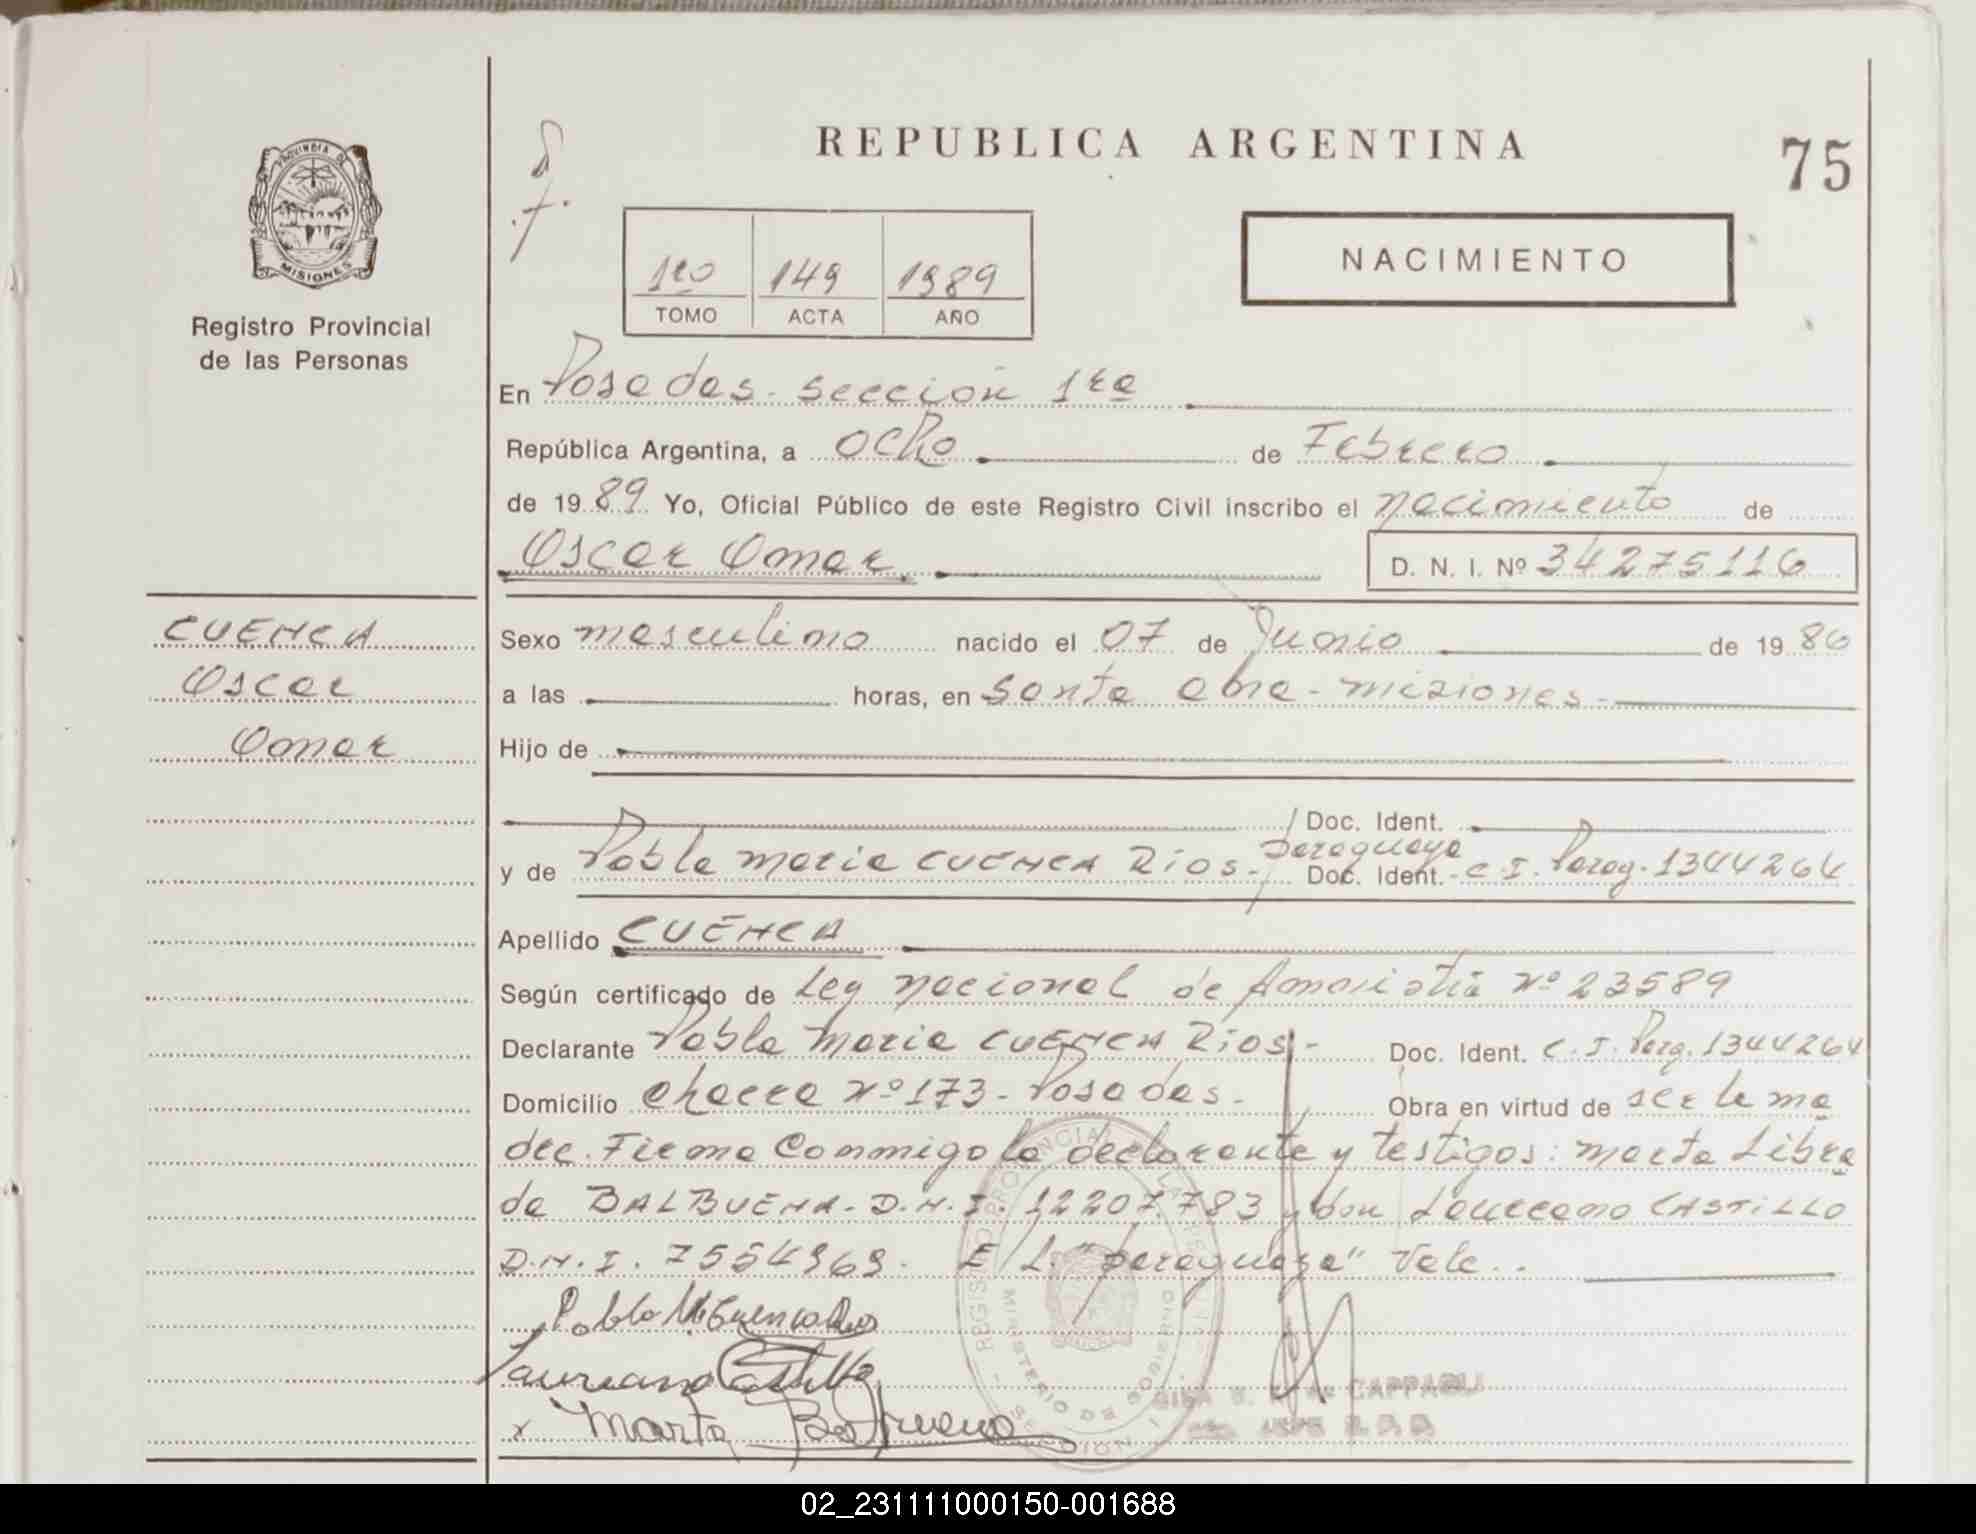 REPUBLICA ARGENTINA
75
PROVINCIA DE
MISIONES
Registro Provincial
de las Personas
1ro 149 1989
TOMO ACTA AÑO
NACIMIENTO
En Posadas - sección 1ra
República Argentina, a ocho de Febrero
de 1989 Yo, Oficial Público de este Registro Civil inscribo el nacimiento de
Oscar Omar D. N. I. Nº 34275116
CUENCA
Oscar
Omar
Sexo masculino nacido el 07 de Junio de 1986
a las horas, en Santa ana - misiones -
Hijo de
Doc. Ident.
paraguaya
y de Pabla maria CUENCA Rios - Doc. Ident. - C.I. Parag. 1344264
Apellido CUENCA
Según certificado de Ley nacional de Amnistia Nº 23589
Declarante Pabla Maria CUENCA Rios - Doc. Ident. C.I. Parg. 1344264
Domicilio chacra Nº 173 - Posadas - Obra en virtud de ser la ma
dre. Firma Conmigo la declarante y testigos: marta Libra
da BALBUENA - D.N.I. 12207.783 y don Laureano CASTILLO
D.N.I. 7554969. E/L. "paraguaya" Vale..
Pabla M. Cuenca Rios
Laureano Castillo
x Marta Balbuena
REGISTRO PROVINCIAL DE LAS PERSONAS
MINISTERIO DE GOBIERNO
SECCION 1
de CAPPABLI
02_231111000150-001688